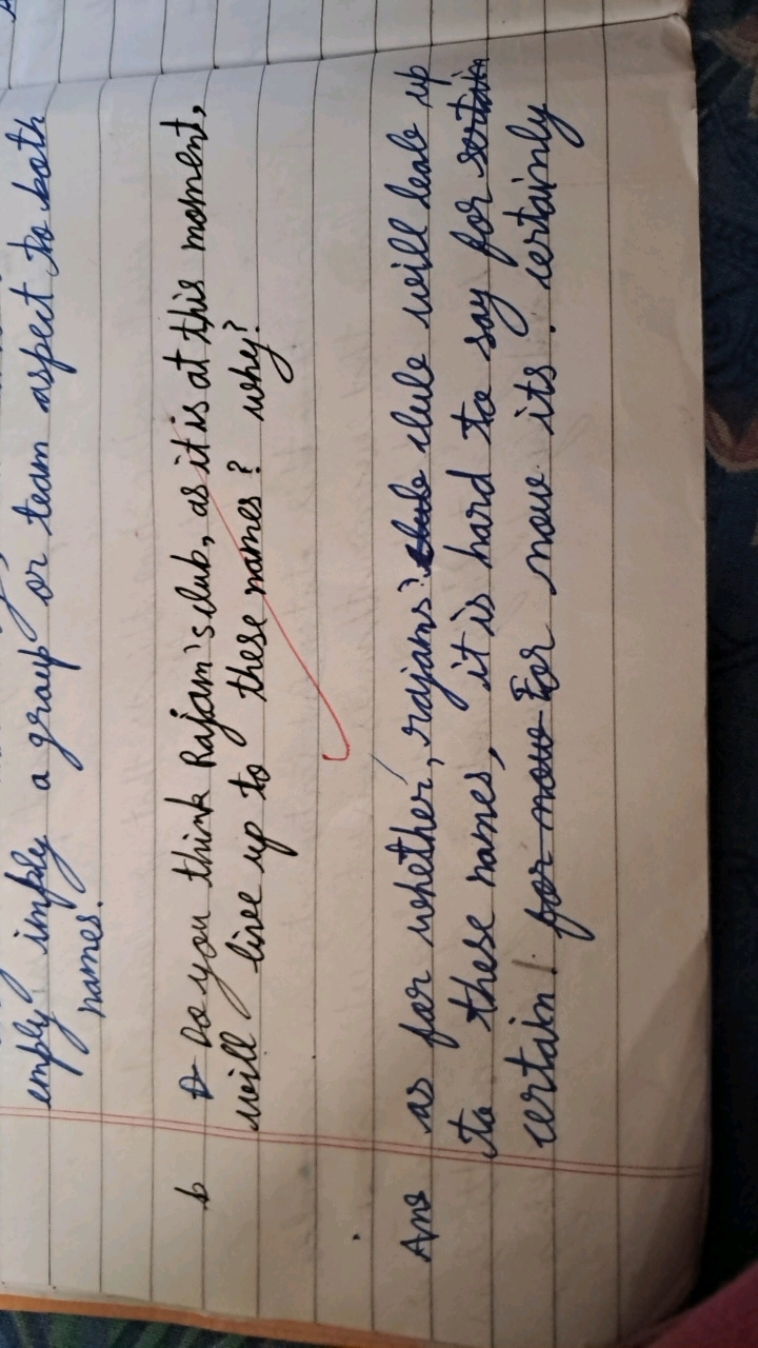 emply imply a group or team aspect to both
names.
b Do you think Rajam's club, as it is at this moment,
will live up to these names? why?
Ans as for whether, rajams' club clube will leale up
to these names, it is hard to say for sertain
certain! for now For now its. certainly